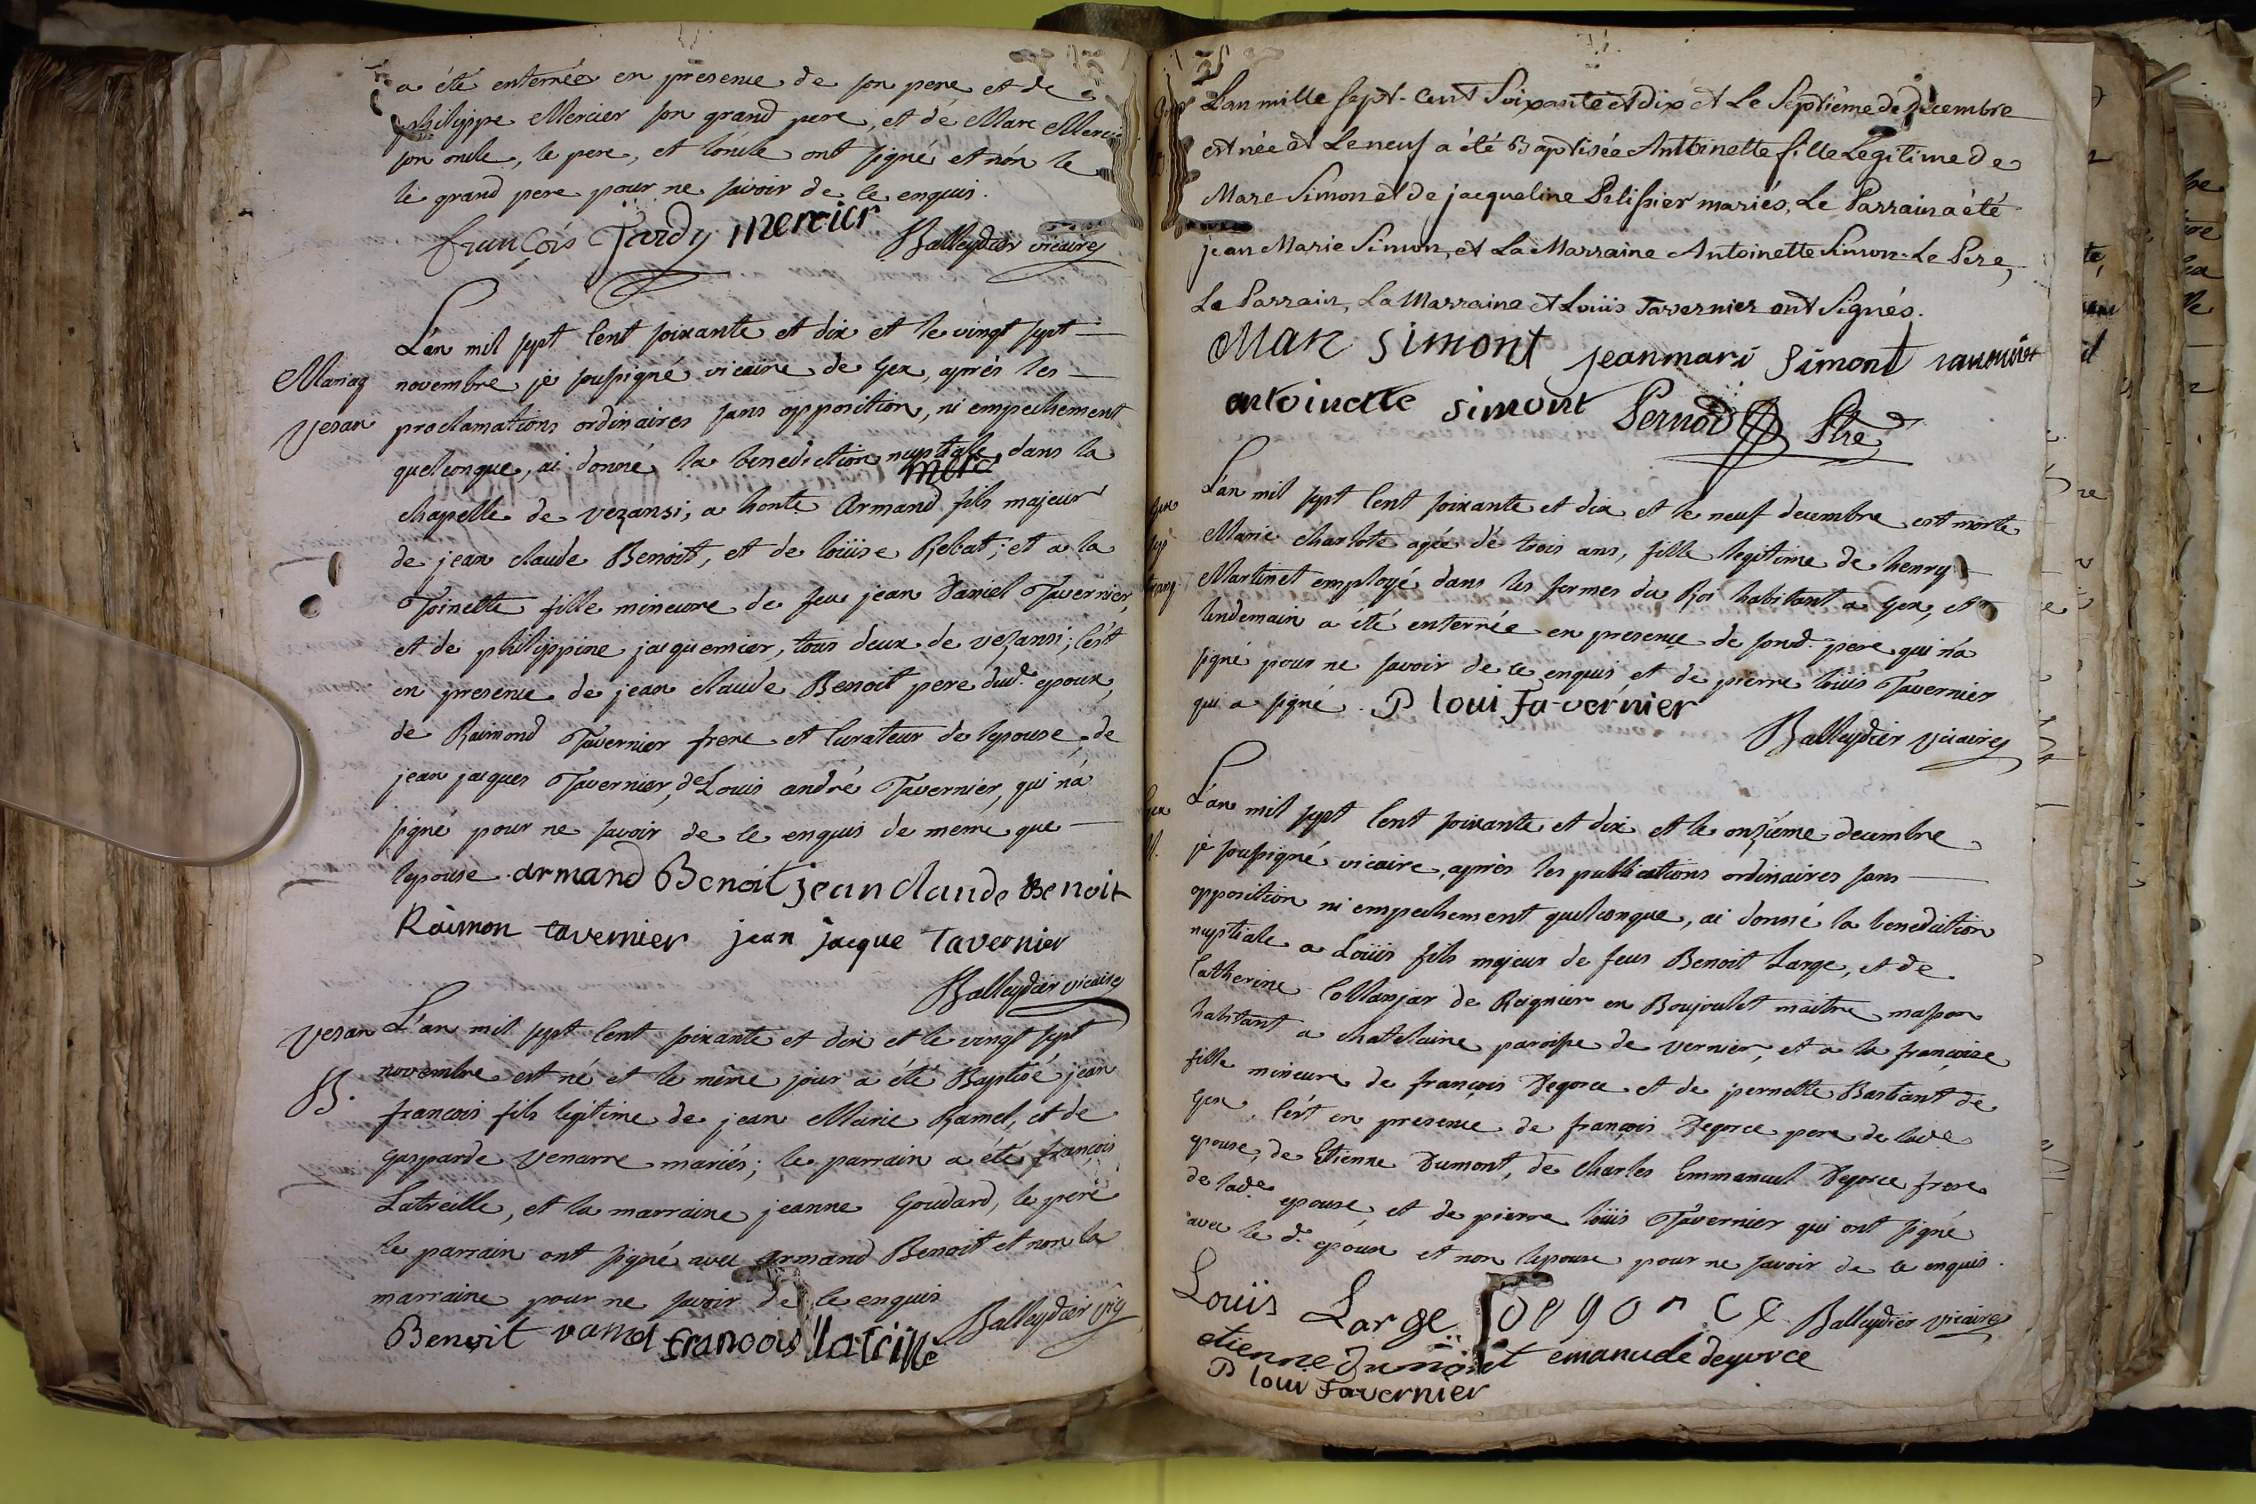 a été enterrée en presence de son pere, et de
philippe Mercier son grand pere, et de Marc Mercier
son oncle, le pere, et l'oncle ont signé et non le
le grand pere pour ne savoir de ce enquis.
françois Tardy mercier Balleydier vicaire
L'an mil sept cent soixante et dix et le vingt sept
Mariag novembre je soussigné vicaire de Gex, après les
Vesan proclamations ordinaires sans opposition, ni empechement
quelconque, ai donné la benediction nuptiale, dans la
chapelle de vezansi, a honte Armand fils majeur
de jean claude Benoit, et de loüise Rebat; et a la
Toinette fille mineure de feu jean Daniel Tavernier,
et de philippine jacquemier, tous deux de vezansi; c'est
en presence de jean claude Benoit pere dud. epoux,
de Raimond Tavernier frere et Curateur de lepouse, de
jean jacques Tavernier, de Louis andré Tavernier, qui n'a
signé pour ne savoir de ce enquis de meme que
lepouse. armand Benoit jean claude Benoit
Raimon tavernier jean jacque Tavernier
Balleydier vicaire
Vesan L'an mil sept cent soixante et dix et le vingt sept
B. novembre est né et le même jour a été Baptisé jean
françois fils legitime de jean Marie Ramel, et de
Gasparde Venarre mariés; le parrain a été françois
Latreille, et la marraine jeanne Goudard, le pere
le parrain ont signé avec armand Benoit et non la
marraine pour ne savoir de ce enquis
Benoit françois latreille Balleydier vic
Gex L'an mille sept-cent Soixante et dix et Le Septième de Decembre
B est née et Le neuf a été Baptisée Anttoinette fille Legitime de
Marc Simon et de jacqueline Pelissier mariés, Le Parrain a été
jean Marie Simon, et La Marraine Antoinette Simon. Le Pere,
Le Parrain, La Marraine et Louis Tavernier ont Signés.
Marc Simont jeanmari Simont tavernier
antoinette simont Pernod Ptre
L'an mil sept cent soixante et dix et le neuf decembre est morte
Gex Marie charlote agée de trois ans, fille legitime de henry
Martinet employé dans les fermes du Roi habitant a Gex, et
lendemain a été enterrée en presence de sond. pere qui n'a
signé pour ne savoir de ce enquis et de pierre loüis Tavernier
qui a signé. P loui Tavernier
Balleydier vicaire
L'an mil sept cent soixante et dix et le onzieme decembre
Gex je soussigné vicaire, après les publications ordinaires sans
M. opposition ni empechement quelconque, ai donné la benediction
nuptiale a Loüis fils majeur de feus Benoit Large, et de
Catherine Collanjar de Reignier en Boujoulet maitre masson
habitant a chatelaine paroisse de vernier, et a la françoise
fille mineure de françois Degorce et de pernette Bastiant de
Gex. C'est en presence de françois Degorce pere de lad.e
epouse, de Etienne Dumont, de charles Emmanuel Degorce frere
de lad.e epouse, et de pierre loüis Tavernier qui ont signé
avec le d. epoux et non lepouse pour ne savoir de ce enquis.
Louis Large degorce Balleydier vicaire
etienne Dumont emanuele degorce
P loui Tavernier